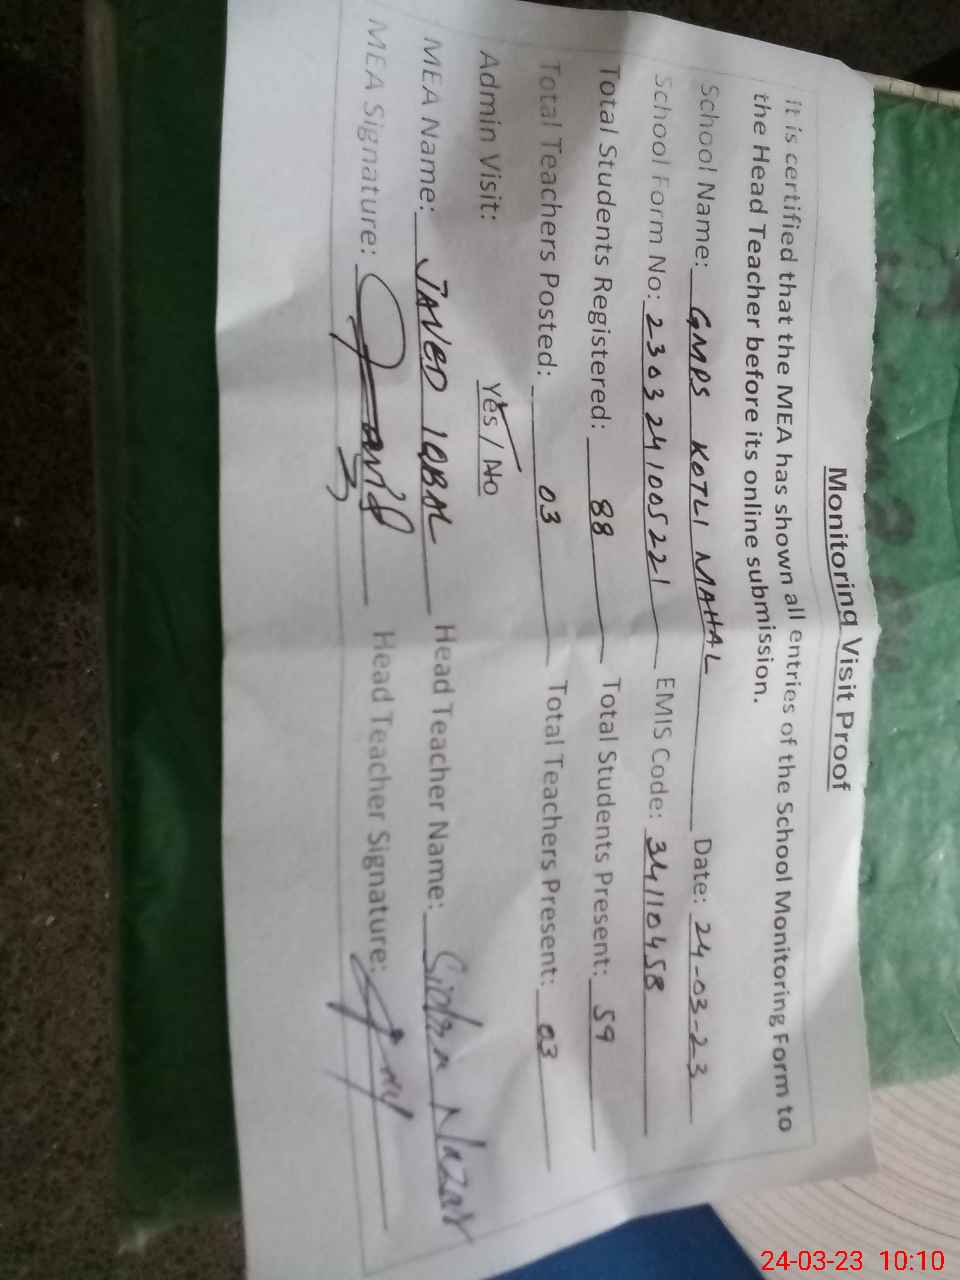 Monitoring Visit Proof
It is certified that the MEA has shown all entries of the School Monitoring Form to
the Head Teacher before its online submission.
School Name: GMPS KOTLI MAHAL Date: 24-03-23
School Form No: 2303241005221 EMIS Code: 34110458
Total Students Registered: 88 Total Students Present: 59
Total Teachers Posted: 03 Total Teachers Present: 03
Admin Visit: Yes / No
MEA Name: JAVED IQBAL Head Teacher Name: Nazar
MEA Signature: Head Teacher Signature:
24-03-23 10:10